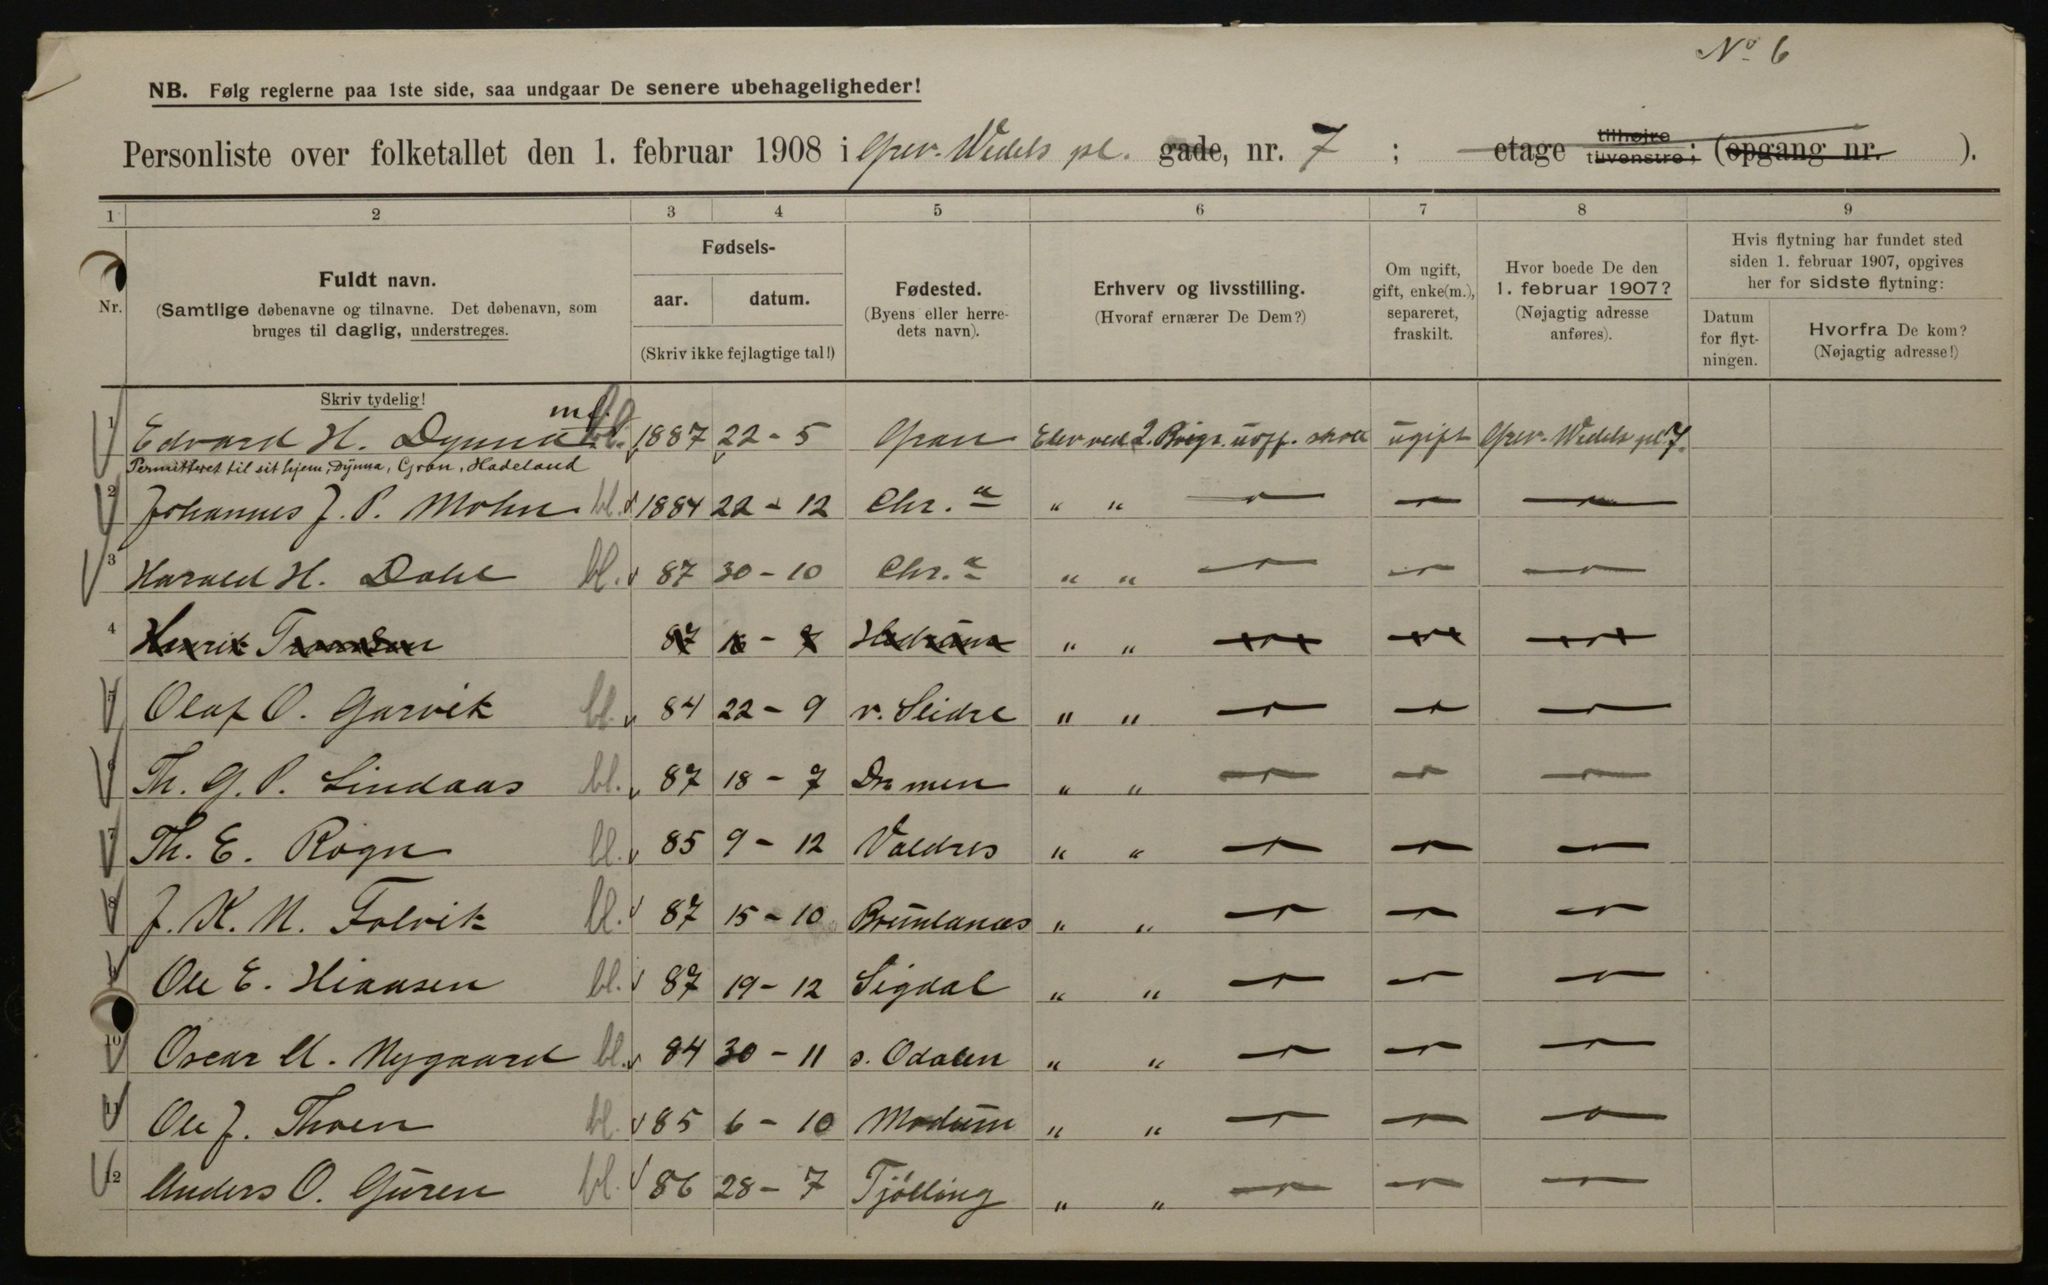 No 6
NB. Følg reglerne paa 1ste side, saa undgaar De senere ubehageligheder!
Personliste over folketallet den 1. februar 1908 i Grev. Wedels pl. gade, nr. 7 ; etage tilhøjre tilvenstre; (opgang nr. ).
1 2 3 4 5 6 7 8 9
Nr.
Fuldt navn.
(Samtlige døbenavne og tilnavne. Det døbenavn, som
bruges til daglig, understreges.
Skriv tydelig!
Fødsels-
aar. datum.
(Skriv ikke fejlagtige tal!)
Fødested.
(Byens eller herre-
dets navn).
Erhverv og livsstilling.
(Hvoraf ernærer De Dem?)
Om ugift,
gift, enke(m.),
separeret,
fraskilt.
Hvor boede De den
1. februar 1907?
(Nøjagtig adresse
anføres).
Hvis flytning har fundet sted
siden 1. februar 1907, opgives
her for sidste flytning:
Datum
for flyt-
ningen.
Hvorfra De kom?
(Nøjagtig adresse!)
1 Edvard H. Dynna bl. 1887 22 - 5 Gran Elev ved 2. Brigs. uoff. skole ugift Grev. Wedels pl. 7.
Permitteret til sit hjem, Dynna, Gran, Hadeland
2 Johannes J. P. Mohn bl. 1884 22 - 12 Chr.a " "
3 Harald H. Dahl bl. 87 30 - 10 Chr.a " "
4 Henrik 87 16 - Hedrum " "
5 Olaf O. Garvik bl. 84 22 - 9 v. Slidre " "
6 Th. G. P. Lindaas bl. 87 18 - 7 Dramen " "
7 Th. E. Rogn bl. 85 9 - 12 Valdres " "
8 J. K. M. Folvik bl. 87 15 - 10 Brunlanæs " "
9 Ole E. Hiaasen bl. 87 19 - 12 Sigdal " "
10 Oscar M. Nygaard bl. 84 30 - 11 s. Odalen " "
11 Ole J. Thoen bl. 85 6 - 10 Modum " "
12 Anders O. Guren bl. 86 28 - 7 Tjølling " "